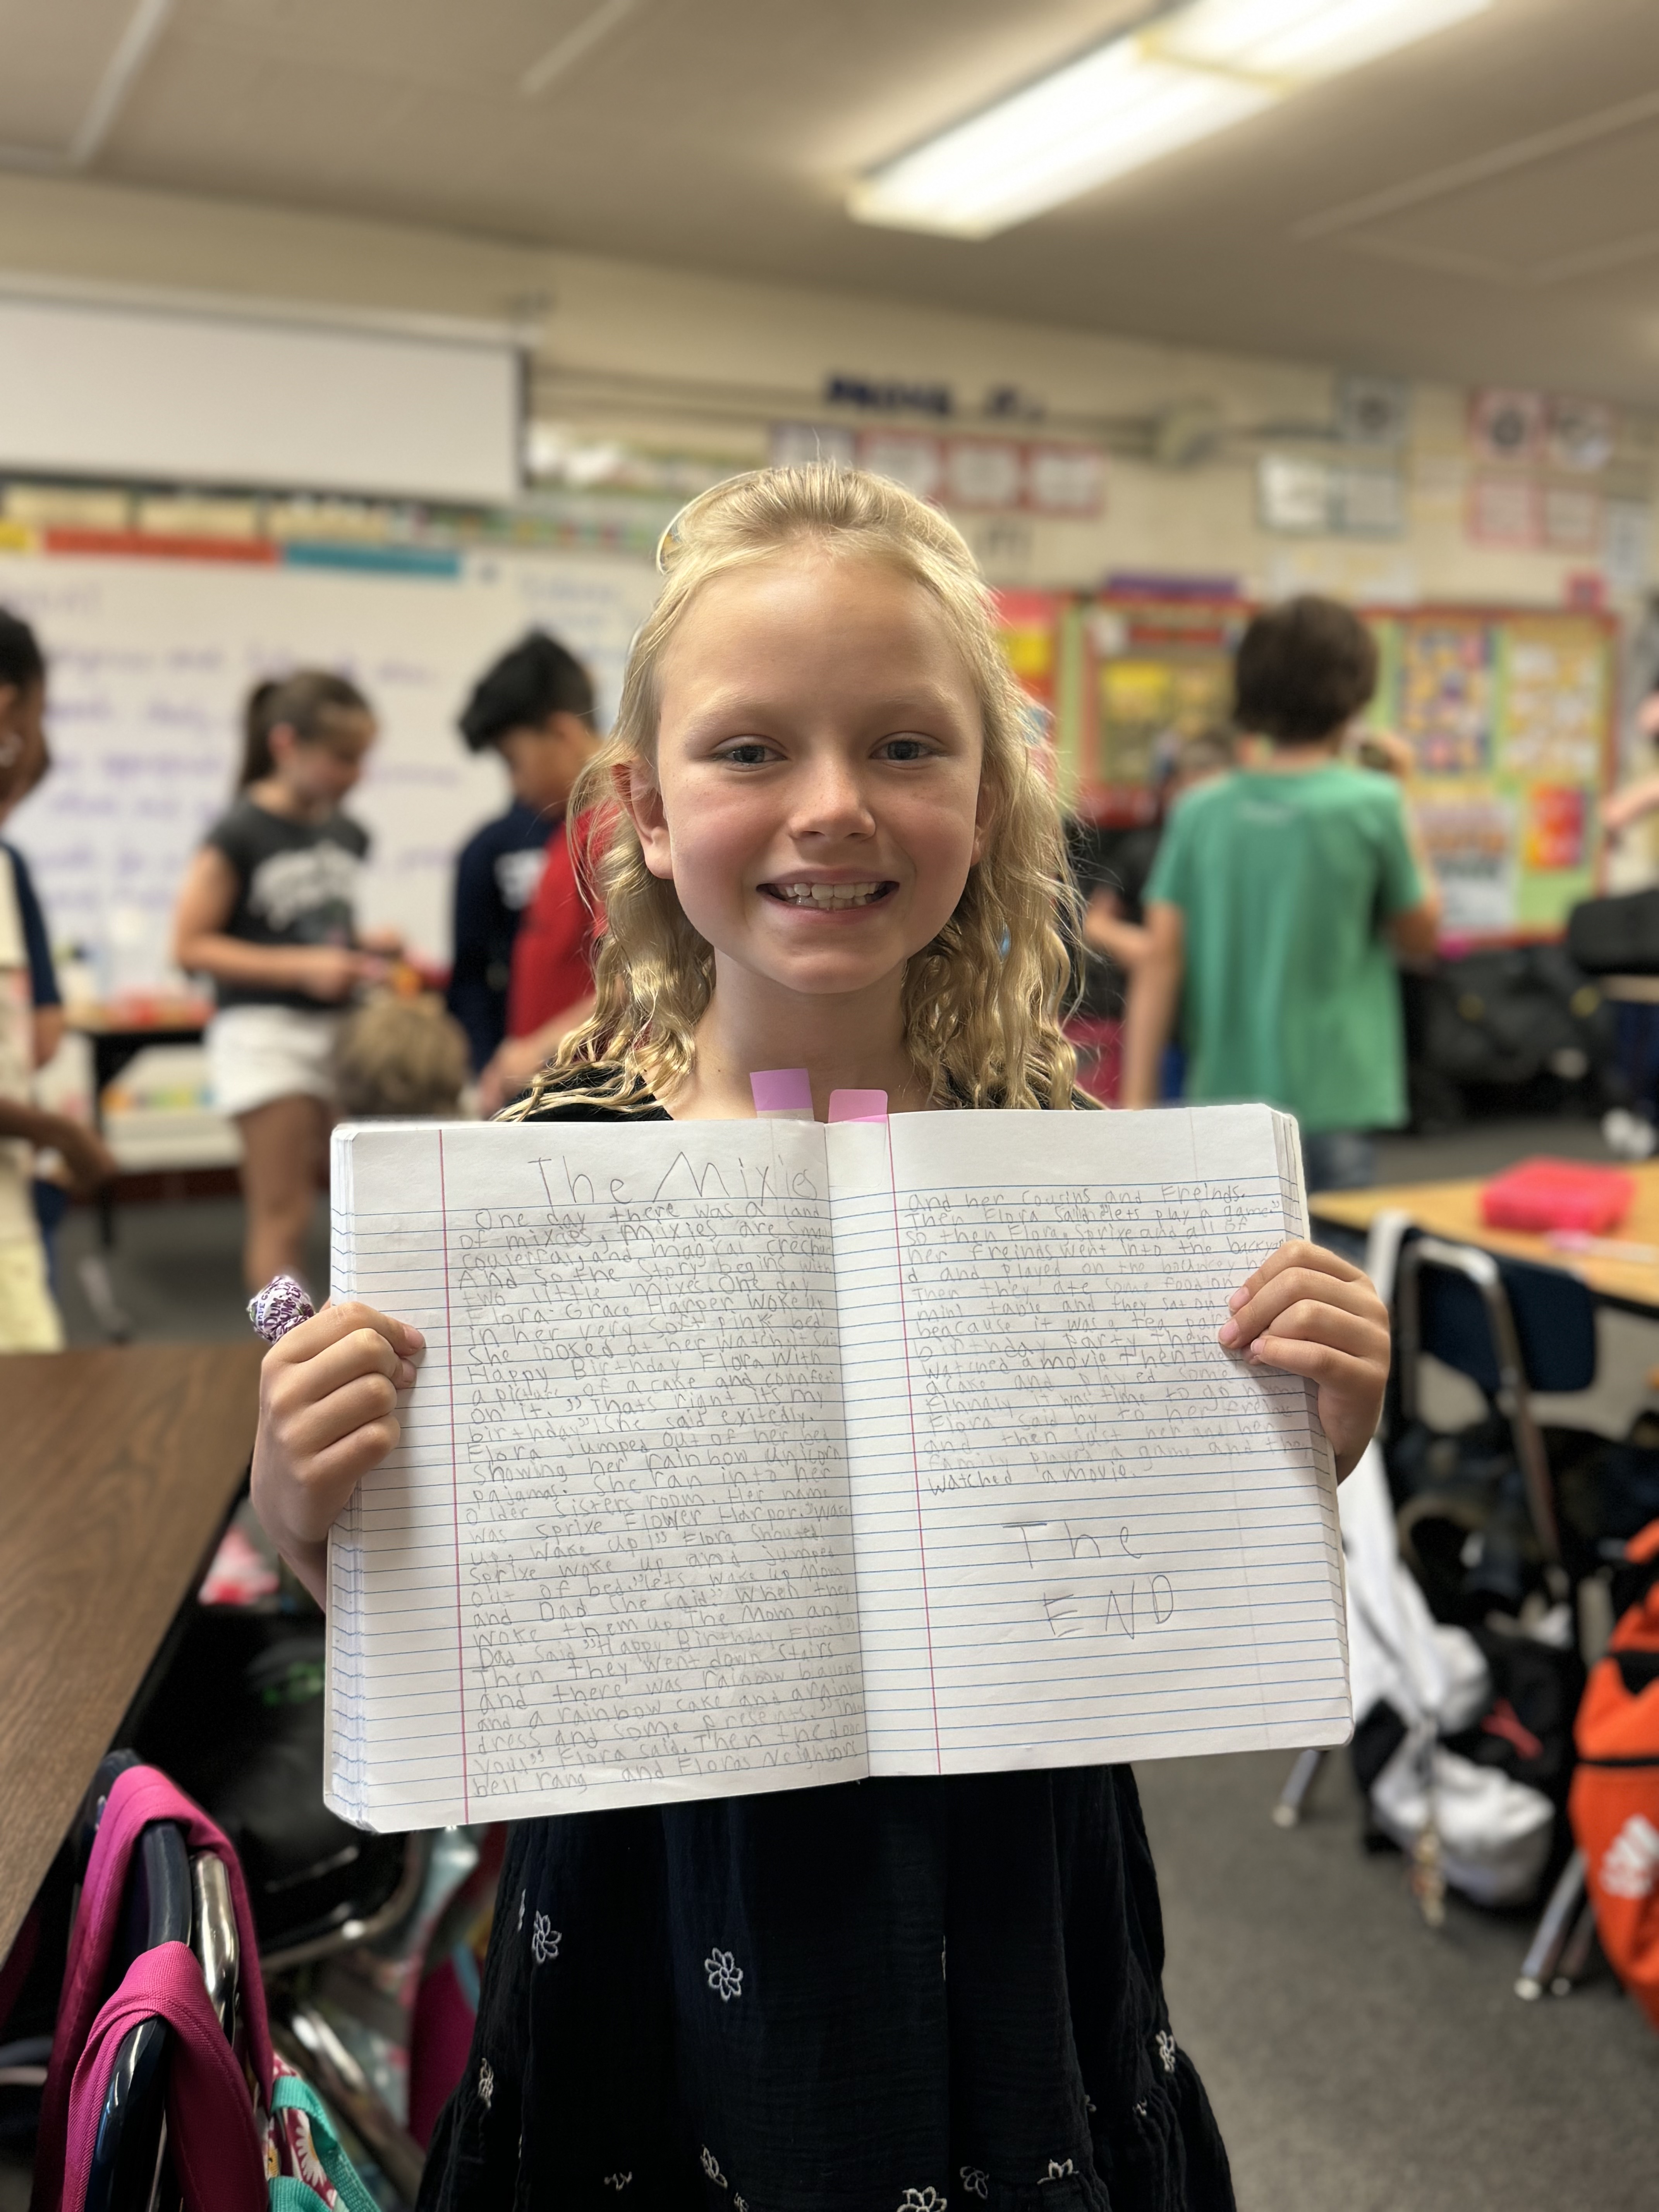 The Mixies
One day there was a land
of mixies, Mixies are
and magical
And so the story begins with
two little mixies One day
Flora Grace Harper woke up
in her very soft pink bed
She looked at her watch it said
Happy Birthday Flora With
a picture of a cake and confeti
on it. "Thats right its my
birthday" she said exitedly.
Flora jumped out of her bed
showing her rainbow unicorn
pajamas. She ran into her
older sisters room. Her name
was Sprixe Flower Harper. "Wake
up, wake up!" Flora shouted
Sprixe woke up and jumped
out of bed. "lets wake up Mom
and Dad she said" When they
woke them up The Mom and
Dad said "Happy Birthday Flora
Then they went down stairs
and there was rainbow
and a rainbow cake and a
dress and some presents.
you" Flora said. Then the door
bell rang and Floras Neighbors
and her cousins and Freinds.
Then Flora said "lets play a game"
So then Flora, Sprixe and all of
her freinds went into the backyar
d and played on the
Then they ate some food on
mini table and they sat on
beacause it was a tea
birthday party Then
watched a movie then
cake and played some
Finnaly it was time to go home
Flora said by to her freinds
and then just her and her
family played a game and the
watched a movie.
The
END